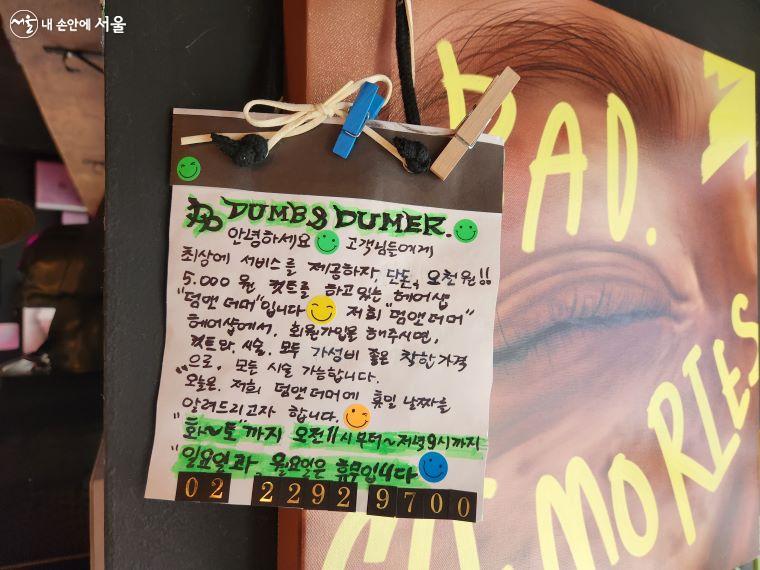 서울 내 손안에 서울
DD DUMB & DUMER.
안녕하세요 고객님들에게
최상에 서비스를 제공하자 단돈, 오천원!!
5.000 원 컷트를 하고 있는 헤어샵
"덤앤더머"입니다 저희 "덤앤더머"
헤어샵에서, 회원가입을 해주시면,
컷트와, 시술, 모두 가성비 좋은 착한가격
으로, 모든 시술 가능합니다.
오늘은, 저희 덤앤더머에 휴일 날짜를
알려드리고자 합니다.
"화~토"까지 오전11시부터~저녁9시까지
"일요일과, 월요일은 휴무입니다
02 2292 9700
DAD.
MEMORIES